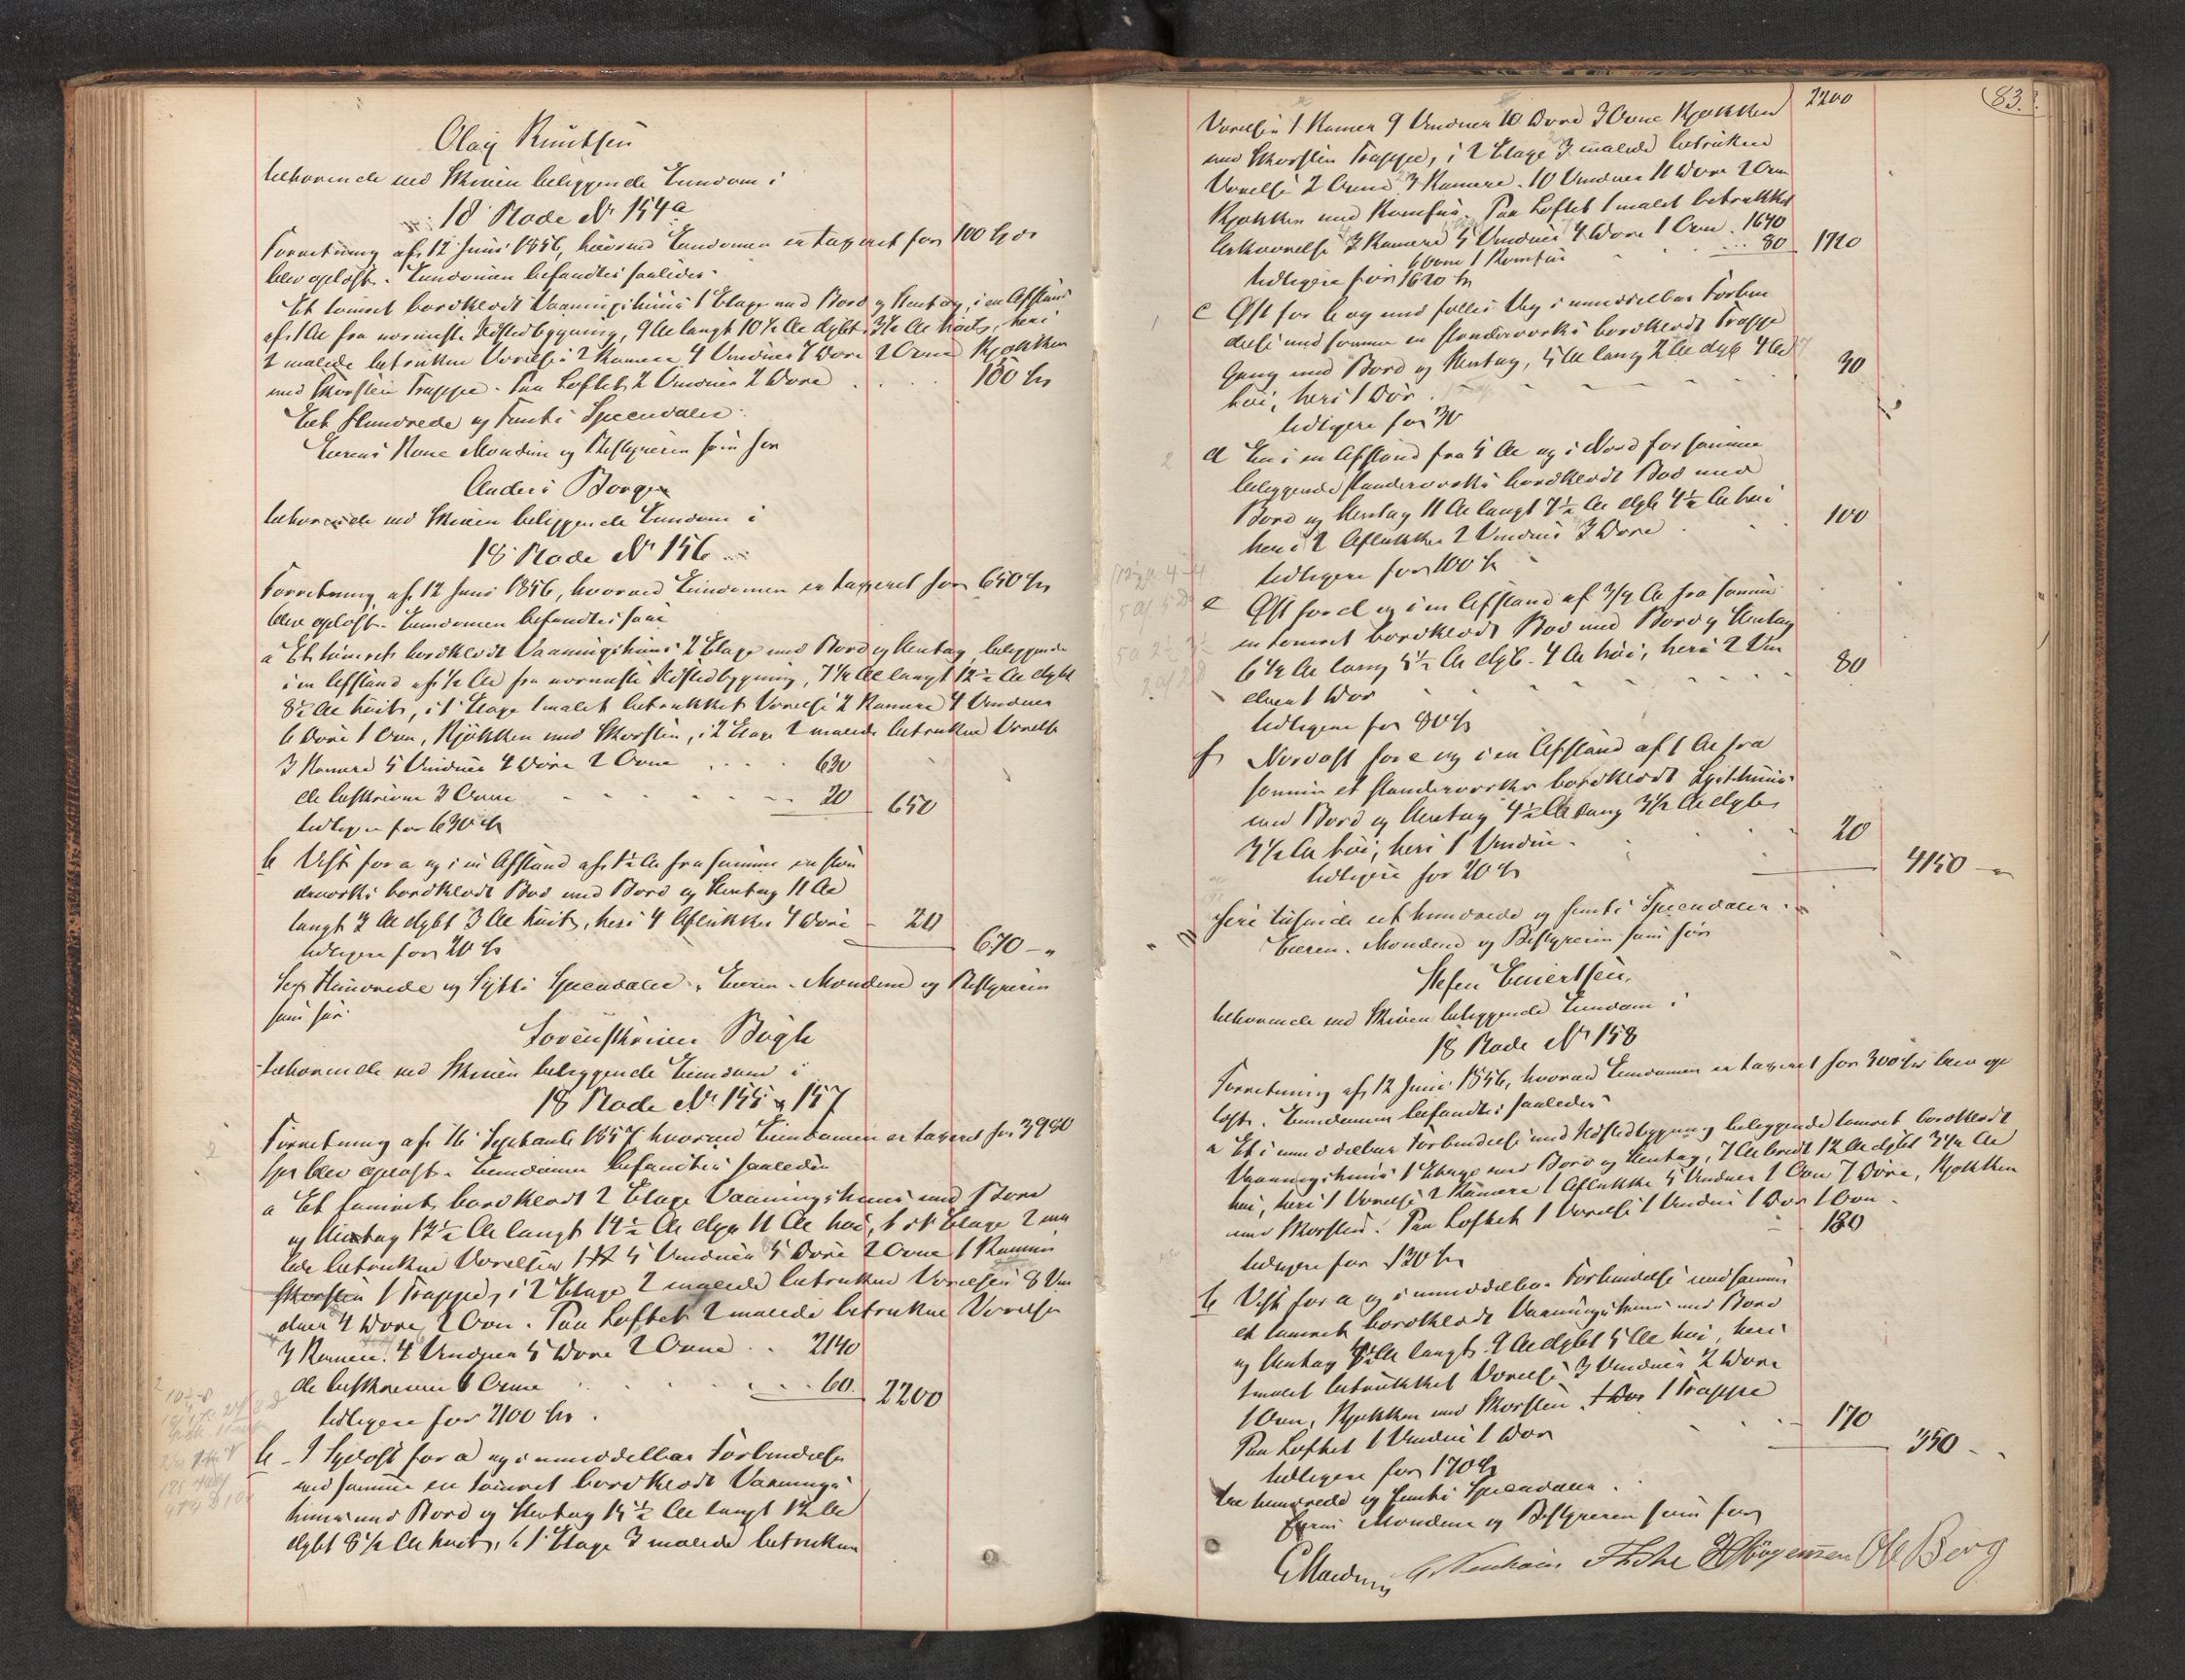 Olaij Knudtsen
tilhørende ved Skien beliggende Eiendom i
18 Rode No 154a
Forretning af 12 Juni 1856, hvorved Eiendommen er taxeret for 100 Spdr
blev opløst. Eiendommen befandtes saaledes.
Et tømret bordklædt Vaaningshuus 1 Etage med Bord og Steentag, i en Afstand
af 1 Al fra nærmeste Ildstedbygning, 9 Al langt 10½ Al dybt 3½ Al høit, heri
2 malede betrukne Værelser 2 Kamere 4 Vinduer 7 Døre 2 Ovne Kjøkken
med Skorsten Trappe. Paa Loftet 2 Vinduer 2 Døre 150 Spd
Eet Hundrede og Femti Speciedaler.
Eierens Kone Mændene og Bestyreren som før
Anders Borgen
tilhørende ved Skien beliggende Eiendom i
18 Rode No 156
Forretning af 12 Juni 1856, hvorved Eiendommen er taxeret for 650 Spd
blev opløst. Eiendommen befandtes saa
a Et tømret bordklædt Vaaningshuus 2 Etage med Bord og Steentag, beliggende
i en Afstand af ½ Al fra nærmeste Ildstedbygning, 7½ Al langt 12½ Al dybt
8½ Al høit, i 1 Etage 1 malet betrukket Værelse 2 Kamere 4 Vinduer
6 Døre 1 Ovn, Kjøkken med Skorsten, i 2 Etage 2 malede betrukne Værelse
3 Kamere 5 Vinduer 4 Døre 2 Ovne 630
de beskrevne 3 Ovne 20 650
tidligere for 630 Spd
b Vest for a og i en Afstand af 1½ Al fra samme en stæn
derværks bordklædt Bod med Bord og Steentag 11 Al
langt 3 Al dybt 3 Al høit, heri 4 Aflukker 4 Døre 20
tidligere for 20 Spd 670 -„
Sex Hundrede og Sytti Speciedaler. Eieren. Mændene og Bestyreren
som før.
Sorenskriver Bugge
tilhørende ved Skien beliggende Eiendom i
18 Rode No 155 & 157
Forretning af 16 Septemb 1857 hvorved Eiendommen er taxeret for 3980
Spd blev opløst. Eiendommen befandtes saaledes
a Et tømret bordklædt 2 Etage Vaaningshuus med Bord
og Steentag 12½ Al langt 14½ Al dybt 11 Al høi, i 1 Etage 2 ma
lede betrukne Værelser 5 Vinduer 5 Døre 2 Ovne 1 Kamin
Skorsten 1 Trappe, i 2 Etage 2 malede betrukne Værelser 8 Vin
duer 4 Døre 2 Ovn. Paa Loftet 2 malede betrukne Værelse
3 Kamere. 4 Vinduer 5 Døre 2 Ovne 2140
de beskrevne 6 Ovne 60 2200
tidligere for 2100 Spd.
b I Sydost for a og i umiddelbar Forbindelse
med samme en tømret bordklædt Vaanings
huus med Bord og Steentag 15½ Al langt 12 Al
dybt 8½ Al høit, i 1 Etage 3 malede betrukne
83.
2200
Værelser 1 Kamer 9 Vinduer 10 Døre 3 Ovne Kjøkken
med Skorsten Trappe, i 2 Etage 3 malede betrukne
Værelse 2 Ovne 3 Kamere. 10 Vinduer 11 Døre 2 Ovn
Kjøkken med Komfur. Paa Loftet 1 malet betrukket
Arkværelse 3 Kamere 5 Vinduer 4 Døre 1 Ovn. 1640
6 Ovne 1 Komfur 80 1720
tidligere for 1620 Spd
c Øst for b og med fælles Væg i umiddelbar Forbin
delse med samme en stænderværks bordklædt Trappe
Gang med Bord og Steentag, 5 Al lang 2 Al dyb 4 Al
høi, heri 1 Dør. 30
tidligere for 30
d En i en Afstand fra 5 Al og i Nord for samme
beliggende stænderværks bordklædt Bod med
Bord og Steentag 11 Al langt 7½ Al dyb 4½ Al høi
heri 2 Aflukker 2 Vinduer 3 Døre 100
tidligere for 100 Spd
e Øst for d og i en Afstand af 3/4 Al fra samme
en tømret bordklædt Bod med Bord og Steentag
6½ Al lang 5½ Al dyb. 4 Al høi, heri 2 Vin
duer 1 Dør 80
tidligere for 80 Spd
f Nordost for e og i en Afstand af 1 Al fra
samme et stænderværks bordklædt Lysthuus
med Bord og Steentag 4½ Al lang 3½ Al dyb
3½ Al høi, heri 1 Vindue. 20
tidligere for 20 Spd 4150 -„
Fire tusinde eet hundrede og femti Speciedaler.
Eieren. Mændene og Bestyreren som før
Stefen Eivertsen,
tilhørende ved Skien beliggende Eiendom i
18 Rode No 158
Forretning af 12 Juni 1856, hvorved Eiendommen er taxeret for 300 Spd blev op
løst. Eiendommen befandtes saaledes
a Et i umiddelbar Forbindelse med Ildstedbygning beliggende tømret bordklædt
Vaaningshuus 1 Etage med Bord og Steentag, 7 Al bredt 12 Al dybt 3½ Al
høi, heri 1 Værelse 2 Kamere 1 Aflukke 5 Vinduer 1 Ovn 7 Døre, Kjøkken
med Skorsten. Paa Loftet 1 Værelse 1 Vindue 1 Dør 1 Ovn. 180
tidligere for 130 Spd
b Vest for a og i umiddelbar Forbindelse med samme
et tømret bordklædt Vaaningshuus med Bord
og Steentag langt 9 Al dybt 5 Al høi, heri
1 malet betrukket Værelse 3 Vinduer 2 Døre
1 Ovn, Kjøkken med Skorsten 1 Dør 1 Trappe
Paa Loftet 1 Vindue 1 Dør 170
tidligere for 170 Spd 350 -
tre hundrede og femti Speciedaler.
Eieren Mændene og Bestyreren som før
Jørgensen Ole Berg